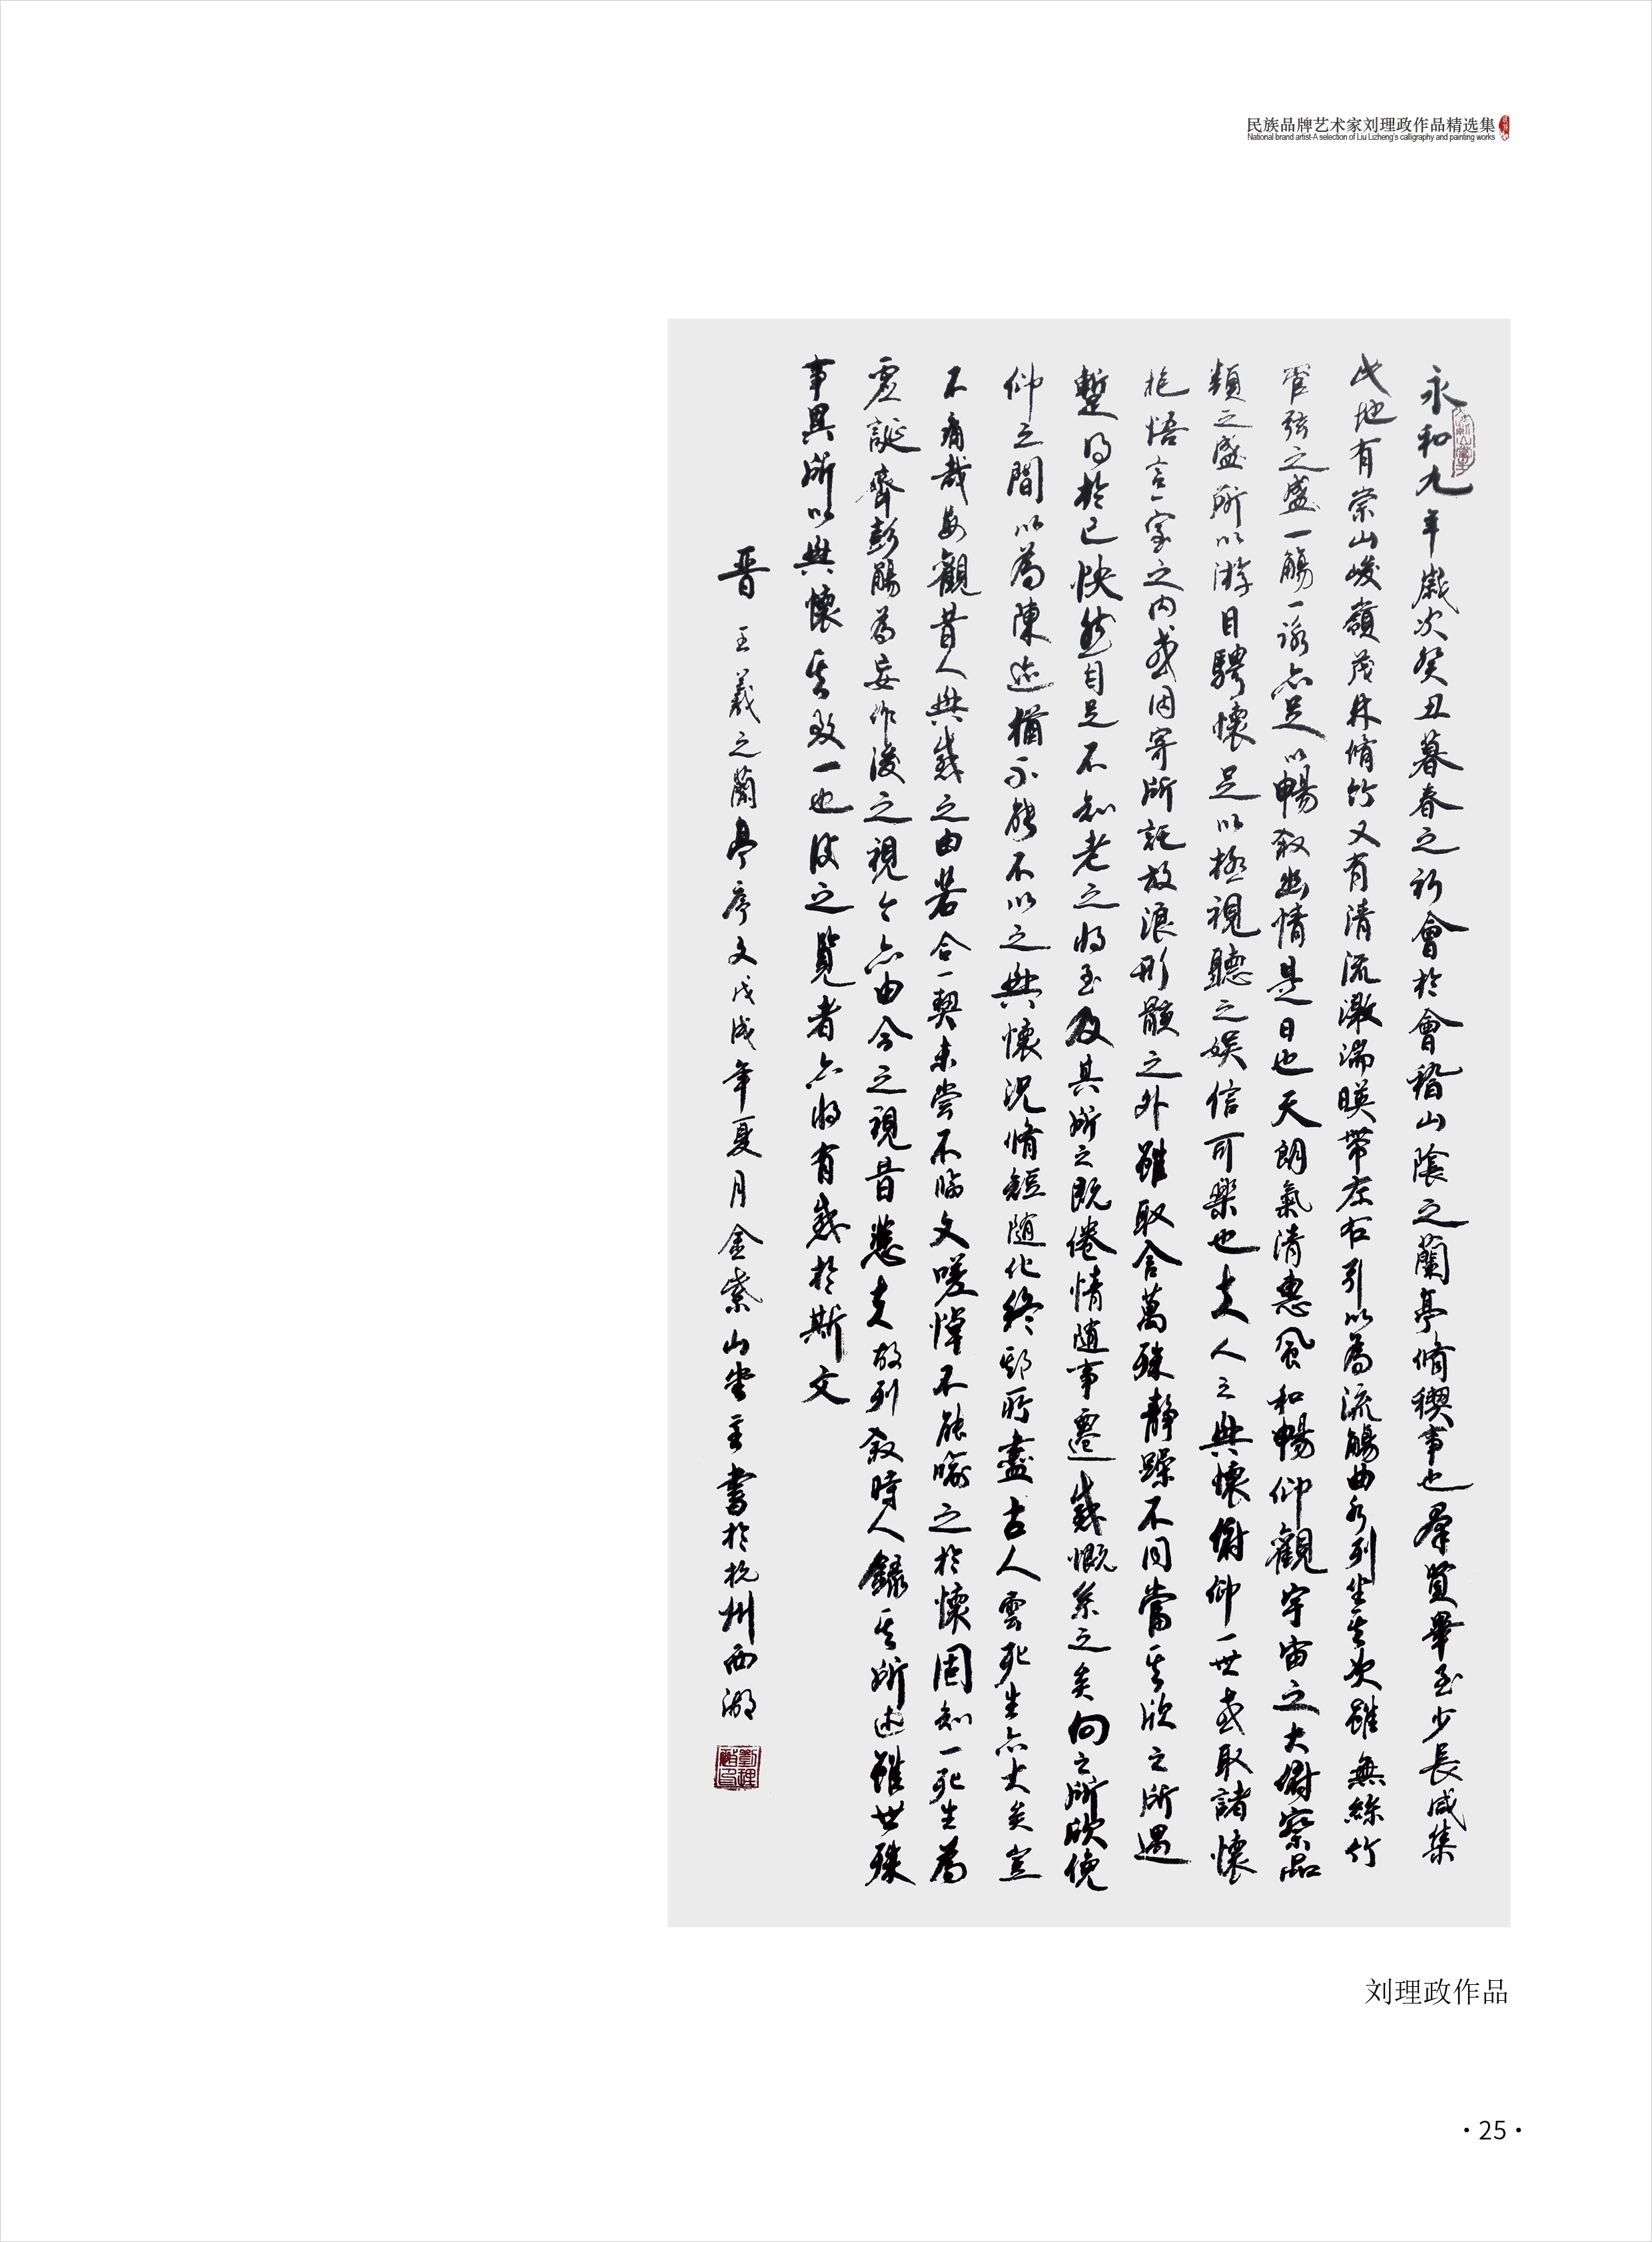 民族品牌艺术家刘理政作品精选集
National brand artist-A selection of Liu Lizheng's calligraphy and painting works
永和九年歲次癸丑暮春之初會於會稽山陰之蘭亭脩稧事也羣賢畢至少長咸集
此地有崇山峻嶺茂林脩竹又有清流激湍暎帶左右引以為流觴曲水列坐其次雖無絲竹
管弦之盛一觴一詠亦足以暢敘幽情是日也天朗氣清惠風和暢仰觀宇宙之大俯察品
類之盛所以游目騁懷足以極視聽之娛信可樂也夫人之興懷俯仰一世或取諸懷
抱悟言一室之內或因寄所託放浪形骸之外雖取舍萬殊靜躁不同當其欣之所遇
暫得於己快然自足不知老之將至及其所之既倦情隨事遷感慨系之矣向之所欣俛
仰之間以為陳迹猶不能不以之興懷況脩短隨化終期所盡古人雲死生亦大矣豈
不痛哉每觀昔人興感之由若合一契未嘗不臨文嗟悼不能喻之於懷固知一死生為
虛誕齊彭殤為妄作後之視今亦由今之視昔悲夫故列敘時人錄其所述雖世殊
事異所以興懷其致一也後之覽者亦將有感於斯文
晉王羲之蘭亭序文戊戌年夏月金紫山堂主書於杭州西湖
刘理政作品
·25·